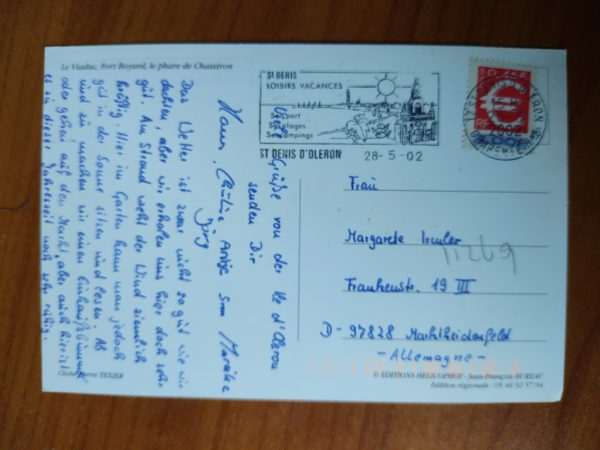 Le Viaduc, Fort Boyard, le phare de Chassiron
ST DENIS
LOISIRS. VACANCES
Son port
Ses plages
Ses campings
ST DENIS D'OLERON 28-5-02
RF
Grüße von der Ile d'Oleron
senden Dir
Jörg
Das Wetter ist zwar nicht so gut wie wir
dachten, aber wir erholen uns hier doch sehr
gut. Am Strand weht der Wind ziemlich
kräftig. Hier im Garten kann man jedoch
gut in der Sonne sitzen und lesen. Ab
und zu machen wir einen Einkaufsbummel
oder gehen auf den Markt, aber auch hier ist
es zu dieser Jahreszeit noch sehr ruhig.
Frau
Margarete
Frankenstr. 19 III
D- 97828 Marktheidenfeld
- Allemagne -
Cliché Pierre TEXIER
© EDITIONS HELICOPHOT - Jean-François BUREAU
Edition régionale - 05 46 52 57 94